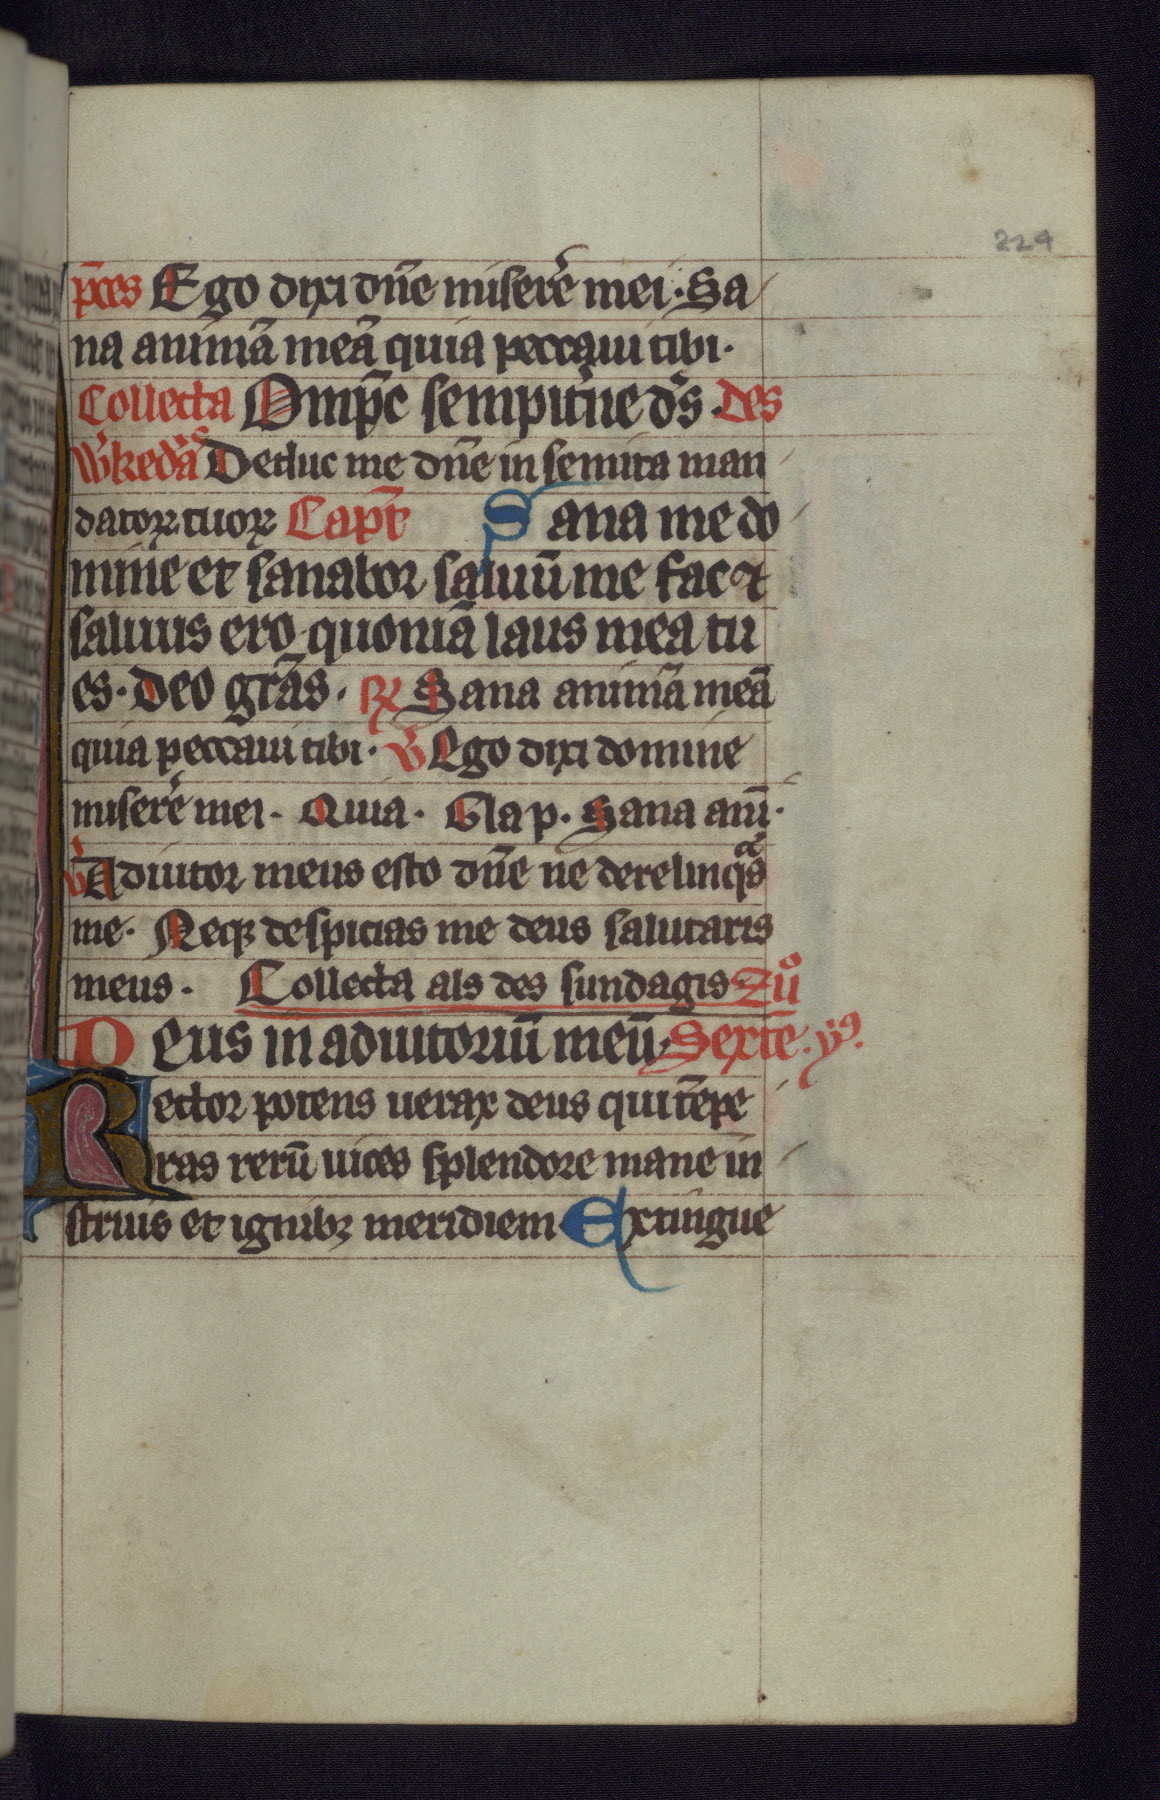 224
p̄ces Ego dixi dn̄e miserē mei. Sa
na animā meā quia peccaui tibi.
Collecta Omp̄c sempit̉ne ds̄. des
W̉keda᷑ Deduc me dn̄e in semita man
datoꝝ tuoꝝ Capt̄ Sana me do
mine et sanabor saluū me fac ⁊
saluus ero quoniā laus mea tu
es. Deo gr̄as. ℟ Sana animā meā
quia peccaui tibi. ℣ Ego dixi domine
miserē mei. Quia. Gla p. Sana anī.
℣ Adiutor meus esto dn̄e ne derelinqͣs
me. Neqꝫ despicias me deus salutaris
meus. Collecta als des sundagis Zuͦ
Deus in adiutoriū meū. Sextē. yꝰ.
Rector potens uerax deus qui tēpe
ras rerū uices splendore mane in
struis et ignibꝫ meridiem Extingue